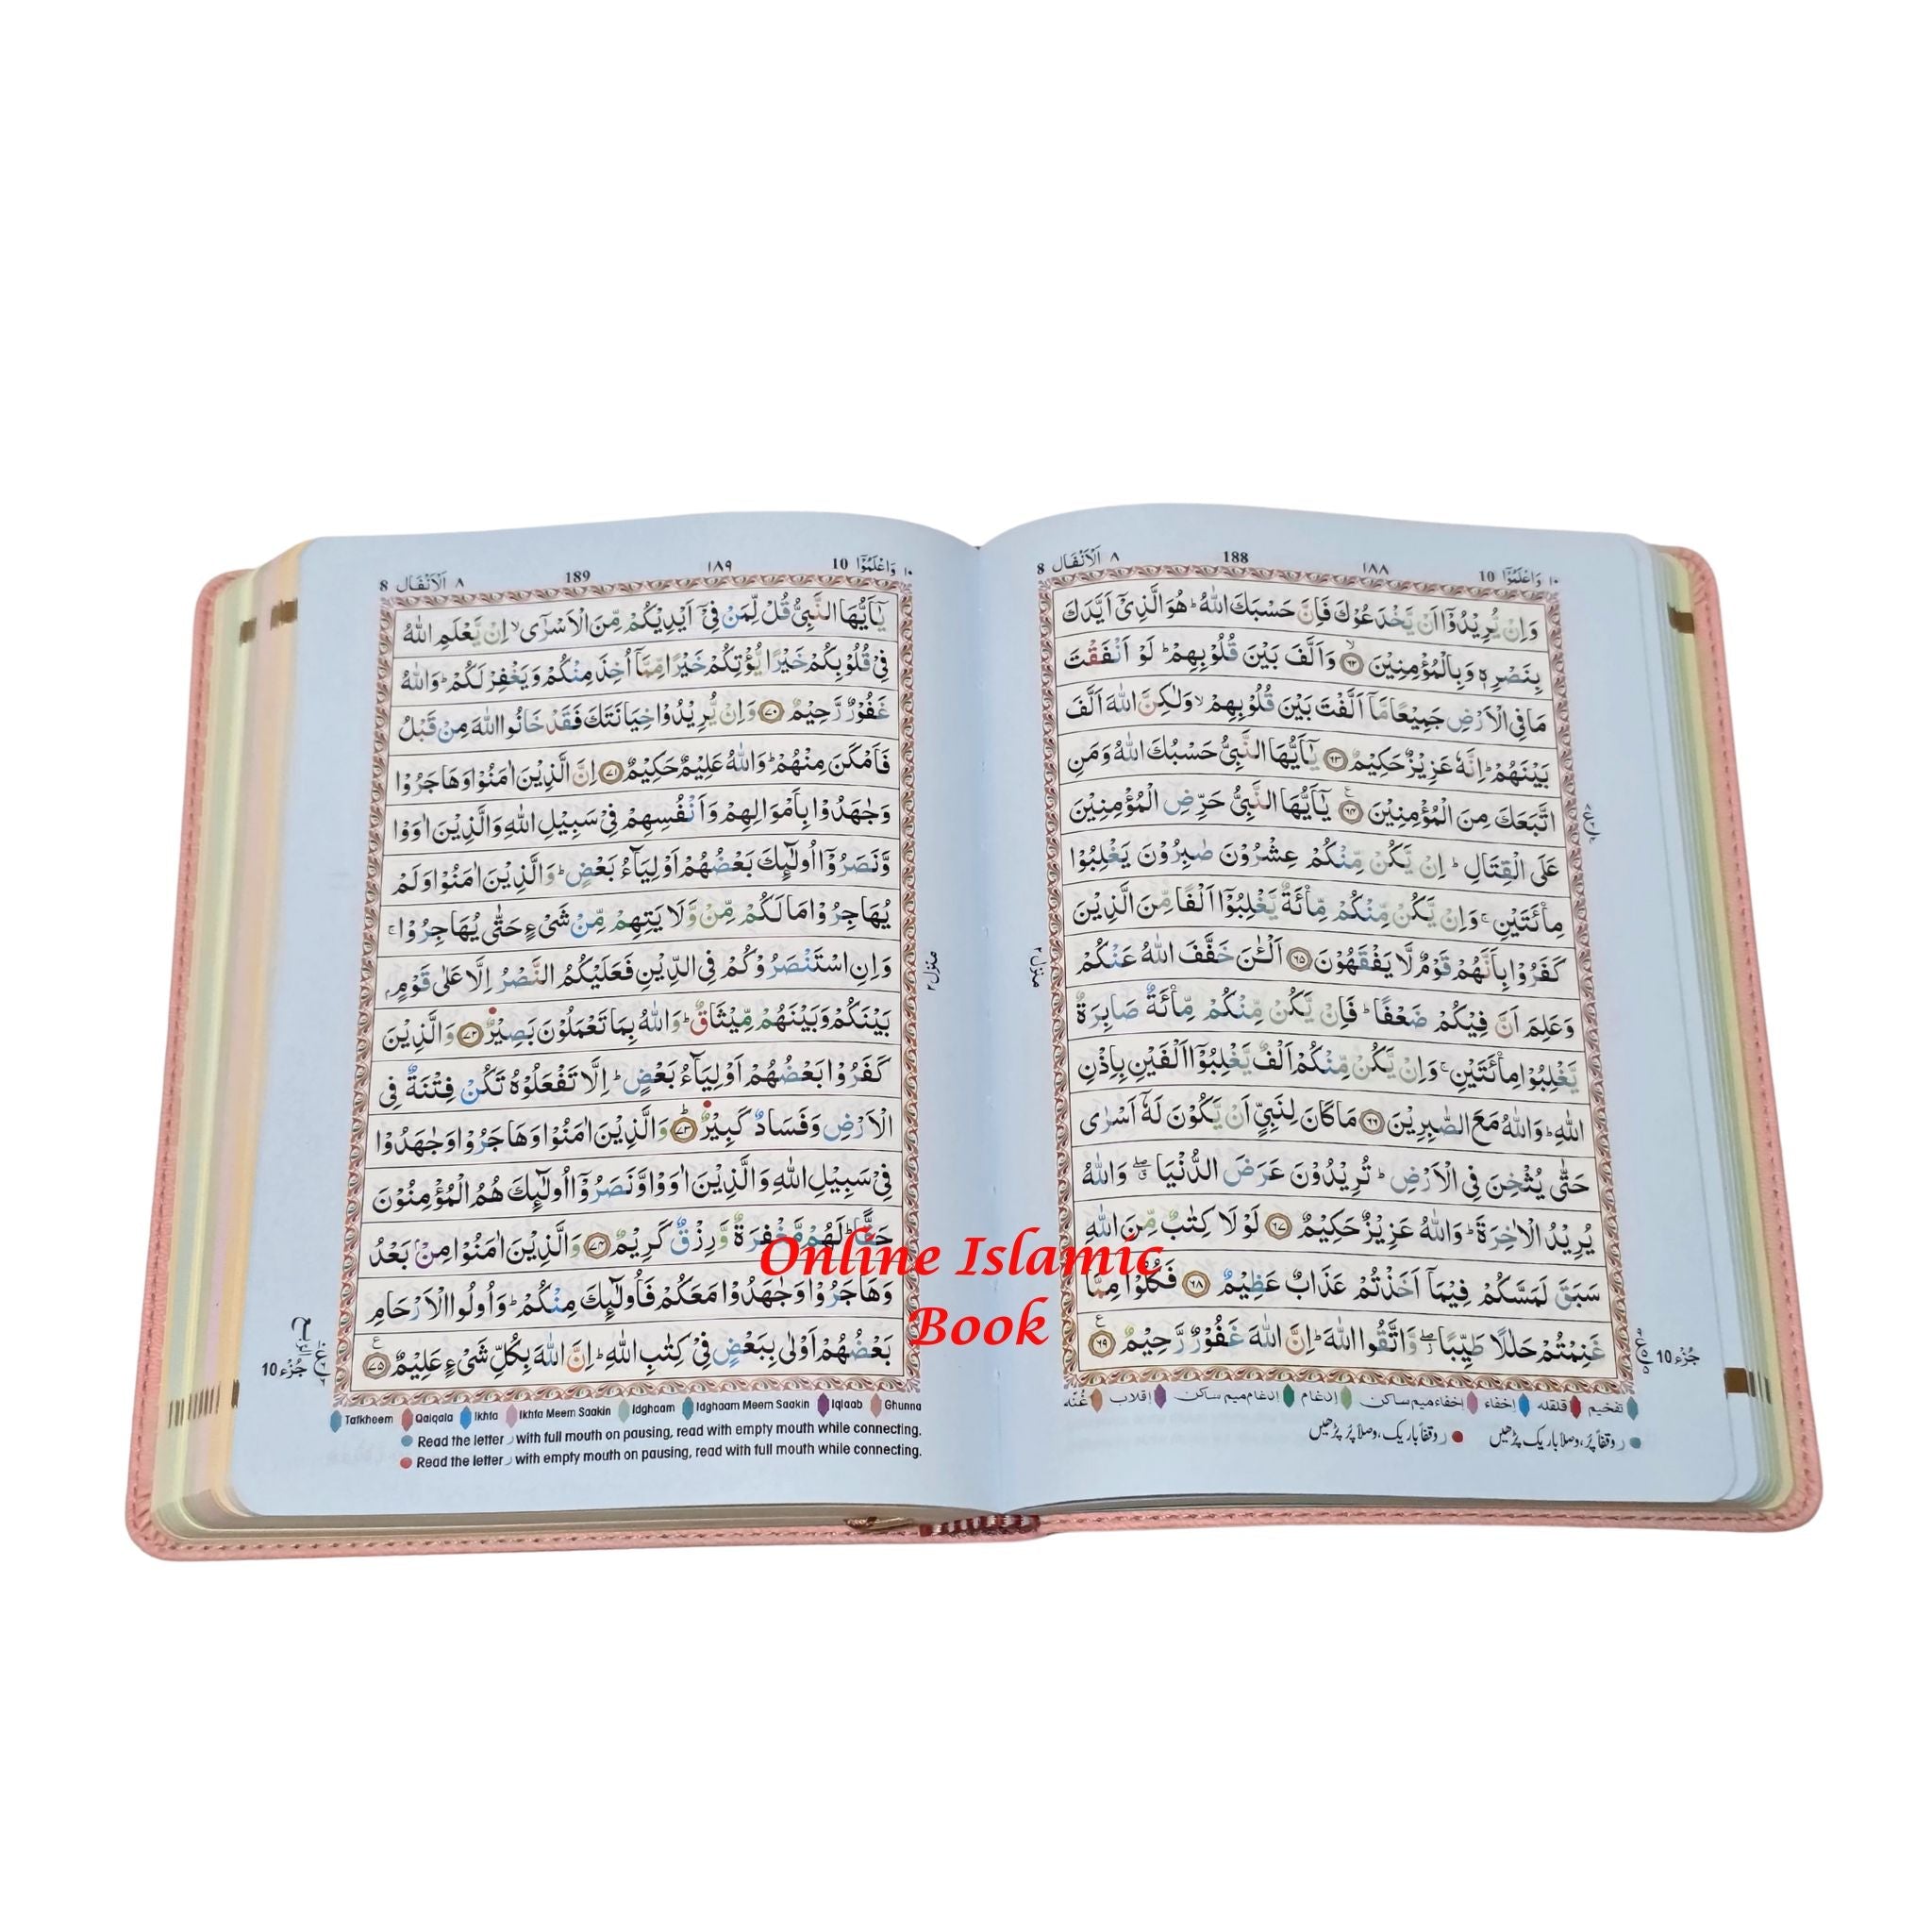 8 اَلْاَنْفَال ٨ 188 ١٨٨ وَاعْلَمُوْٓا 10 ١٠
وَاِنْ يُّرِيْدُوْٓا اَنْ يَّخْدَعُوْكَ فَاِنَّ حَسْبَكَ اللّٰهُ ؕ هُوَ الَّذِيْٓ اَيَّدَكَ
بِنَصْرِهٖ وَبِالْمُؤْمِنِيْنَ ﴿٦٢﴾ ۙ وَاَلَّفَ بَيْنَ قُلُوْبِهِمْ ؕ لَوْ اَنْفَقْتَ
مَا فِى الْاَرْضِ جَمِيْعًا مَّآ اَلَّفْتَ بَيْنَ قُلُوْبِهِمْ ۙ وَلٰكِنَّ اللّٰهَ اَلَّفَ
بَيْنَهُمْ ؕ اِنَّهٗ عَزِيْزٌ حَكِيْمٌ ﴿٦٣﴾ يٰٓاَيُّهَا النَّبِيُّ حَسْبُكَ اللّٰهُ وَمَنِ
اتَّبَعَكَ مِنَ الْمُؤْمِنِيْنَ ﴿٦٤﴾ يٰٓاَيُّهَا النَّبِيُّ حَرِّضِ الْمُؤْمِنِيْنَ
عَلَى الْقِتَالِ ؕ اِنْ يَّكُنْ مِّنْكُمْ عِشْرُوْنَ صٰبِرُوْنَ يَغْلِبُوْا
مِائَتَيْنِ ۚ وَاِنْ يَّكُنْ مِّنْكُمْ مِّائَةٌ يَّغْلِبُوْٓا اَلْفًا مِّنَ الَّذِيْنَ
كَفَرُوْا بِاَنَّهُمْ قَوْمٌ لَّا يَفْقَهُوْنَ ﴿٦٥﴾ اَلْـٰٔنَ خَفَّفَ اللّٰهُ عَنْكُمْ
وَعَلِمَ اَنَّ فِيْكُمْ ضَعْفًا ؕ فَاِنْ يَّكُنْ مِّنْكُمْ مِّائَةٌ صَابِرَةٌ
يَّغْلِبُوْا مِائَتَيْنِ ۚ وَاِنْ يَّكُنْ مِّنْكُمْ اَلْفٌ يَّغْلِبُوْٓا اَلْفَيْنِ بِاِذْنِ
اللّٰهِ ؕ وَاللّٰهُ مَعَ الصّٰبِرِيْنَ ﴿٦٦﴾ مَا كَانَ لِنَبِيٍّ اَنْ يَّكُوْنَ لَهٗٓ اَسْرٰى
حَتّٰى يُثْخِنَ فِى الْاَرْضِ ؕ تُرِيْدُوْنَ عَرَضَ الدُّنْيَا ۖ وَاللّٰهُ
يُرِيْدُ الْاٰخِرَةَ ؕ وَاللّٰهُ عَزِيْزٌ حَكِيْمٌ ﴿٦٧﴾ لَوْلَا كِتٰبٌ مِّنَ اللّٰهِ
سَبَقَ لَمَسَّكُمْ فِيْمَآ اَخَذْتُمْ عَذَابٌ عَظِيْمٌ ﴿٦٨﴾ فَكُلُوْا مِمَّا
غَنِمْتُمْ حَلٰلًا طَيِّبًا ۖ وَّاتَّقُوا اللّٰهَ ؕ اِنَّ اللّٰهَ غَفُوْرٌ رَّحِيْمٌ ﴿٦٩﴾
منزل ٢
جُزْء 10
تفخیم قلقله إخفاء إخفاء میم ساکن إدغام إدغام میم ساکن إقلاب غُنّه
ر وقفاً پُر، وصلاً باریک پڑھیں ر وقفاً باریک، وصلاً پُر پڑھیں
8 اَلْاَنْفَال ٨ 189 ١٨٩ وَاعْلَمُوْٓا 10 ١٠
يٰٓاَيُّهَا النَّبِيُّ قُلْ لِّمَنْ فِيْٓ اَيْدِيْكُمْ مِّنَ الْاَسْرٰٓى ۙ اِنْ يَّعْلَمِ اللّٰهُ
فِيْ قُلُوْبِكُمْ خَيْرًا يُّؤْتِكُمْ خَيْرًا مِّمَّآ اُخِذَ مِنْكُمْ وَيَغْفِرْ لَكُمْ ؕ وَاللّٰهُ
غَفُوْرٌ رَّحِيْمٌ ﴿٧٠﴾ وَاِنْ يُّرِيْدُوْا خِيَانَتَكَ فَقَدْ خَانُوا اللّٰهَ مِنْ قَبْلُ
فَاَمْكَنَ مِنْهُمْ ؕ وَاللّٰهُ عَلِيْمٌ حَكِيْمٌ ﴿٧١﴾ اِنَّ الَّذِيْنَ اٰمَنُوْا وَهَاجَرُوْا
وَجٰهَدُوْا بِاَمْوَالِهِمْ وَاَنْفُسِهِمْ فِيْ سَبِيْلِ اللّٰهِ وَالَّذِيْنَ اٰوَوْا
وَّنَصَرُوْٓا اُولٰٓئِكَ بَعْضُهُمْ اَوْلِيَآءُ بَعْضٍ ؕ وَالَّذِيْنَ اٰمَنُوْا وَلَمْ
يُهَاجِرُوْا مَا لَكُمْ مِّنْ وَّلَايَتِهِمْ مِّنْ شَيْءٍ حَتّٰى يُهَاجِرُوْا ۚ
وَاِنِ اسْتَنْصَرُوْكُمْ فِى الدِّيْنِ فَعَلَيْكُمُ النَّصْرُ اِلَّا عَلٰى قَوْمٍۭ
بَيْنَكُمْ وَبَيْنَهُمْ مِّيْثَاقٌ ؕ وَاللّٰهُ بِمَا تَعْمَلُوْنَ بَصِيْرٌ ﴿٧٢﴾ وَالَّذِيْنَ
كَفَرُوْا بَعْضُهُمْ اَوْلِيَآءُ بَعْضٍ ؕ اِلَّا تَفْعَلُوْهُ تَكُنْ فِتْنَةٌ فِى
الْاَرْضِ وَفَسَادٌ كَبِيْرٌ ﴿٧٣﴾ ؕ وَالَّذِيْنَ اٰمَنُوْا وَهَاجَرُوْا وَجٰهَدُوْا
فِيْ سَبِيْلِ اللّٰهِ وَالَّذِيْنَ اٰوَوْا وَّنَصَرُوْٓا اُولٰٓئِكَ هُمُ الْمُؤْمِنُوْنَ
حَقًّا ؕ لَهُمْ مَّغْفِرَةٌ وَّرِزْقٌ كَرِيْمٌ ﴿٧٤﴾ وَالَّذِيْنَ اٰمَنُوْا مِنْۢ بَعْدُ
وَهَاجَرُوْا وَجٰهَدُوْا مَعَكُمْ فَاُولٰٓئِكَ مِنْكُمْ ؕ وَاُولُوا الْاَرْحَامِ
بَعْضُهُمْ اَوْلٰى بِبَعْضٍ فِيْ كِتٰبِ اللّٰهِ ؕ اِنَّ اللّٰهَ بِكُلِّ شَيْءٍ عَلِيْمٌ ﴿٧٥﴾
منزل ٢
جُزْء 10
Tafkheem Qalqala Ikhfa Ikhfa Meem Saakin Idghaam Idghaam Meem Saakin Iqlaab Ghunna
Read the letter ر with full mouth on pausing, read with empty mouth while connecting.
Read the letter ر with empty mouth on pausing, read with full mouth while connecting.
Online Islamic
Book